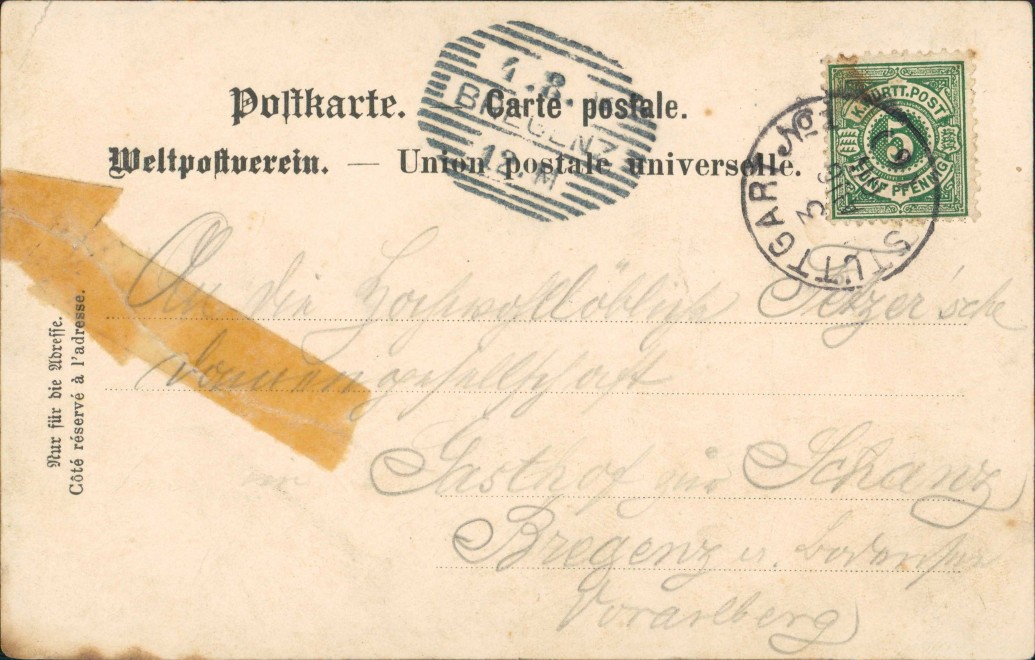 Postkarte. Carte postale.
Weltpostverein. — Union postale universelle.
1.8.
BREGENZ
12 M
K. WÜRTT. POST
5
FÜNF PFENNIG
STUTTGART No 1
3
An die Hochwohllöbliche
Gasthof zur Schanz
Bregenz a. Bodensee
Vorarlberg
Nur für die Adresse.
Côté réservé à l'adresse.